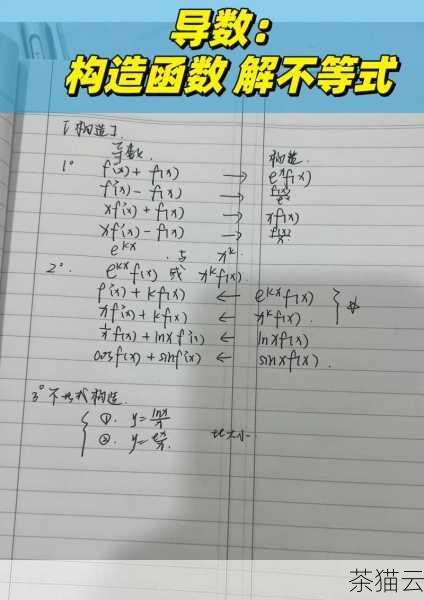 导数：
构造函数 解不等式
「构造」
导数. 构造.
1° f'(x)+f(x) → e^x f(x)
f'(x)-f(x) → f(x)/e^x
xf'(x)+f(x) → xf(x)
xf'(x)-f(x) → f(x)/x
e^{kx} 与 x^k.
2°. e^{kx}f(x) 或 x^k f(x).
f'(x)+kf(x) ← e^{kx}f(x)
xf'(x)+kf(x) ← x^k f(x).
1/x f(x)+lnx f'(x) ← lnxf(x)
cosf(x)+sinf'(x) ← sinxf(x).
3° 构造.
①. y=lnx/x
②. y=e^x/x. 比大小.
茶猫云